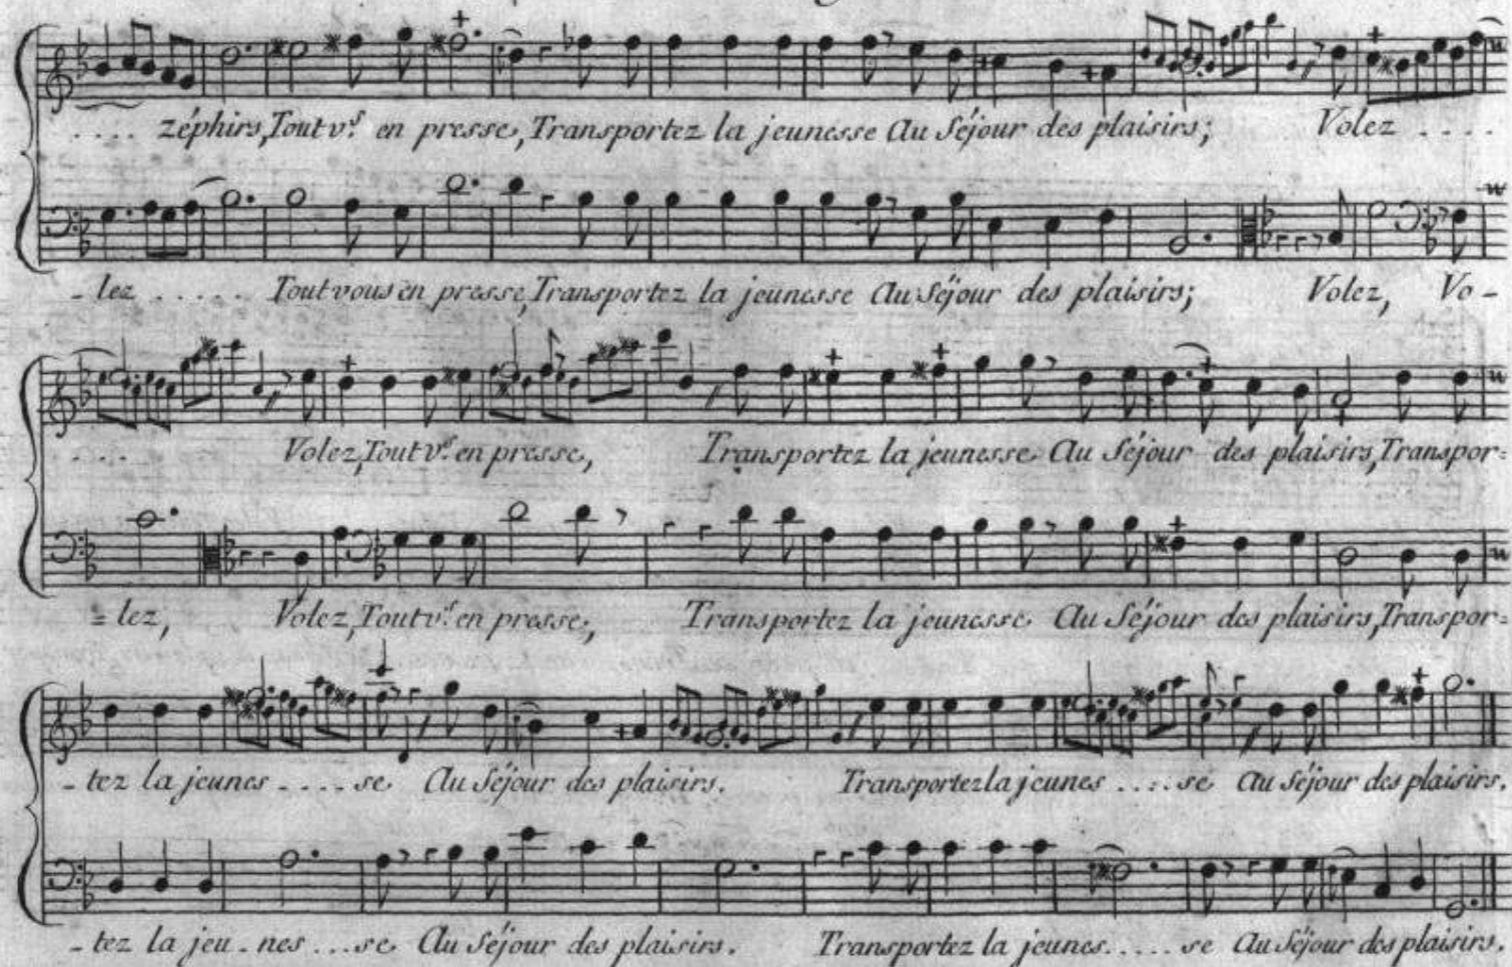 .... zéphirs, Tout v.s en presse, Transportez la jeunesse Au Séjour des plaisirs; Volez ....
- lez ..... Tout vous en presse, Transportez la jeunesse Au Séjour des plaisirs; Volez, Vo -
.... Volez, Tout v.s en presse, Transportez la jeunesse Au Séjour des plaisirs, Transpor=
= lez, Volez, Tout v.s en presse, Transportez la jeunesse Au Séjour des plaisirs, Transpor=
- tez la jeunes .... se Au Séjour des plaisirs. Transportez la jeunes .... se Au Séjour des plaisirs.
- tez la jeu - nes ... se Au Séjour des plaisirs. Transportez la jeunes ..... se Au Séjour des plaisirs.